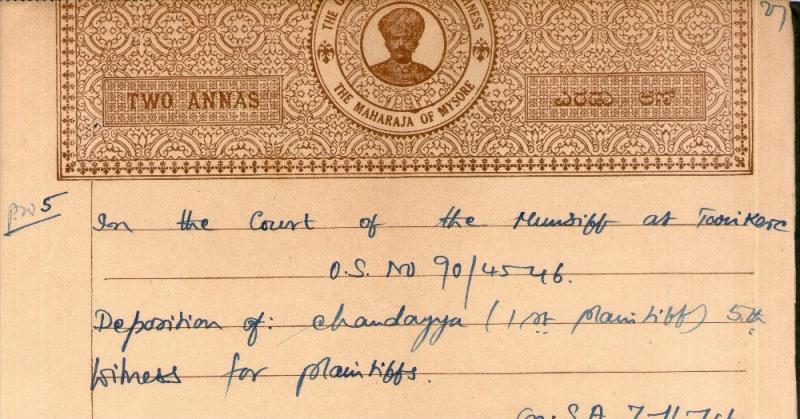 27
THE G
NESS
THE MAHARAJA OF MYSORE
TWO ANNAS
ಎರಡು ಆಣೆ
P.W 5
In the Court of the Munsiff at Tarikere
O.S. No 90/45-46.
Deposition of: Chandayya (1st plaintiff) 5th
witness for plaintiffs.
on S.A.